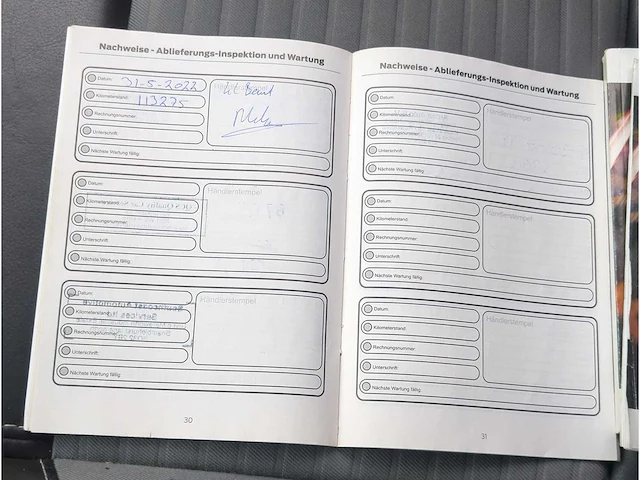 Nachweise - Ablieferungs-Inspektion und Wartung
Datum: 31-5-2022
Kilometerstand: 113275
Rechnungsnummer:
Unterschrift:
Nächste Wartung fällig:
Händlerstempel
Datum:
Kilometerstand:
Rechnungsnummer:
Unterschrift:
Nächste Wartung fällig:
Händlerstempel
Datum:
Kilometerstand:
Rechnungsnummer:
Unterschrift:
Nächste Wartung fällig:
Händlerstempel
30
Nachweise - Ablieferungs-Inspektion und Wartung
Datum:
Kilometerstand:
Rechnungsnummer:
Unterschrift:
Nächste Wartung fällig:
Händlerstempel
Datum:
Kilometerstand:
Rechnungsnummer:
Unterschrift:
Nächste Wartung fällig:
Händlerstempel
Datum:
Kilometerstand:
Rechnungsnummer:
Unterschrift:
Nächste Wartung fällig:
Händlerstempel
31